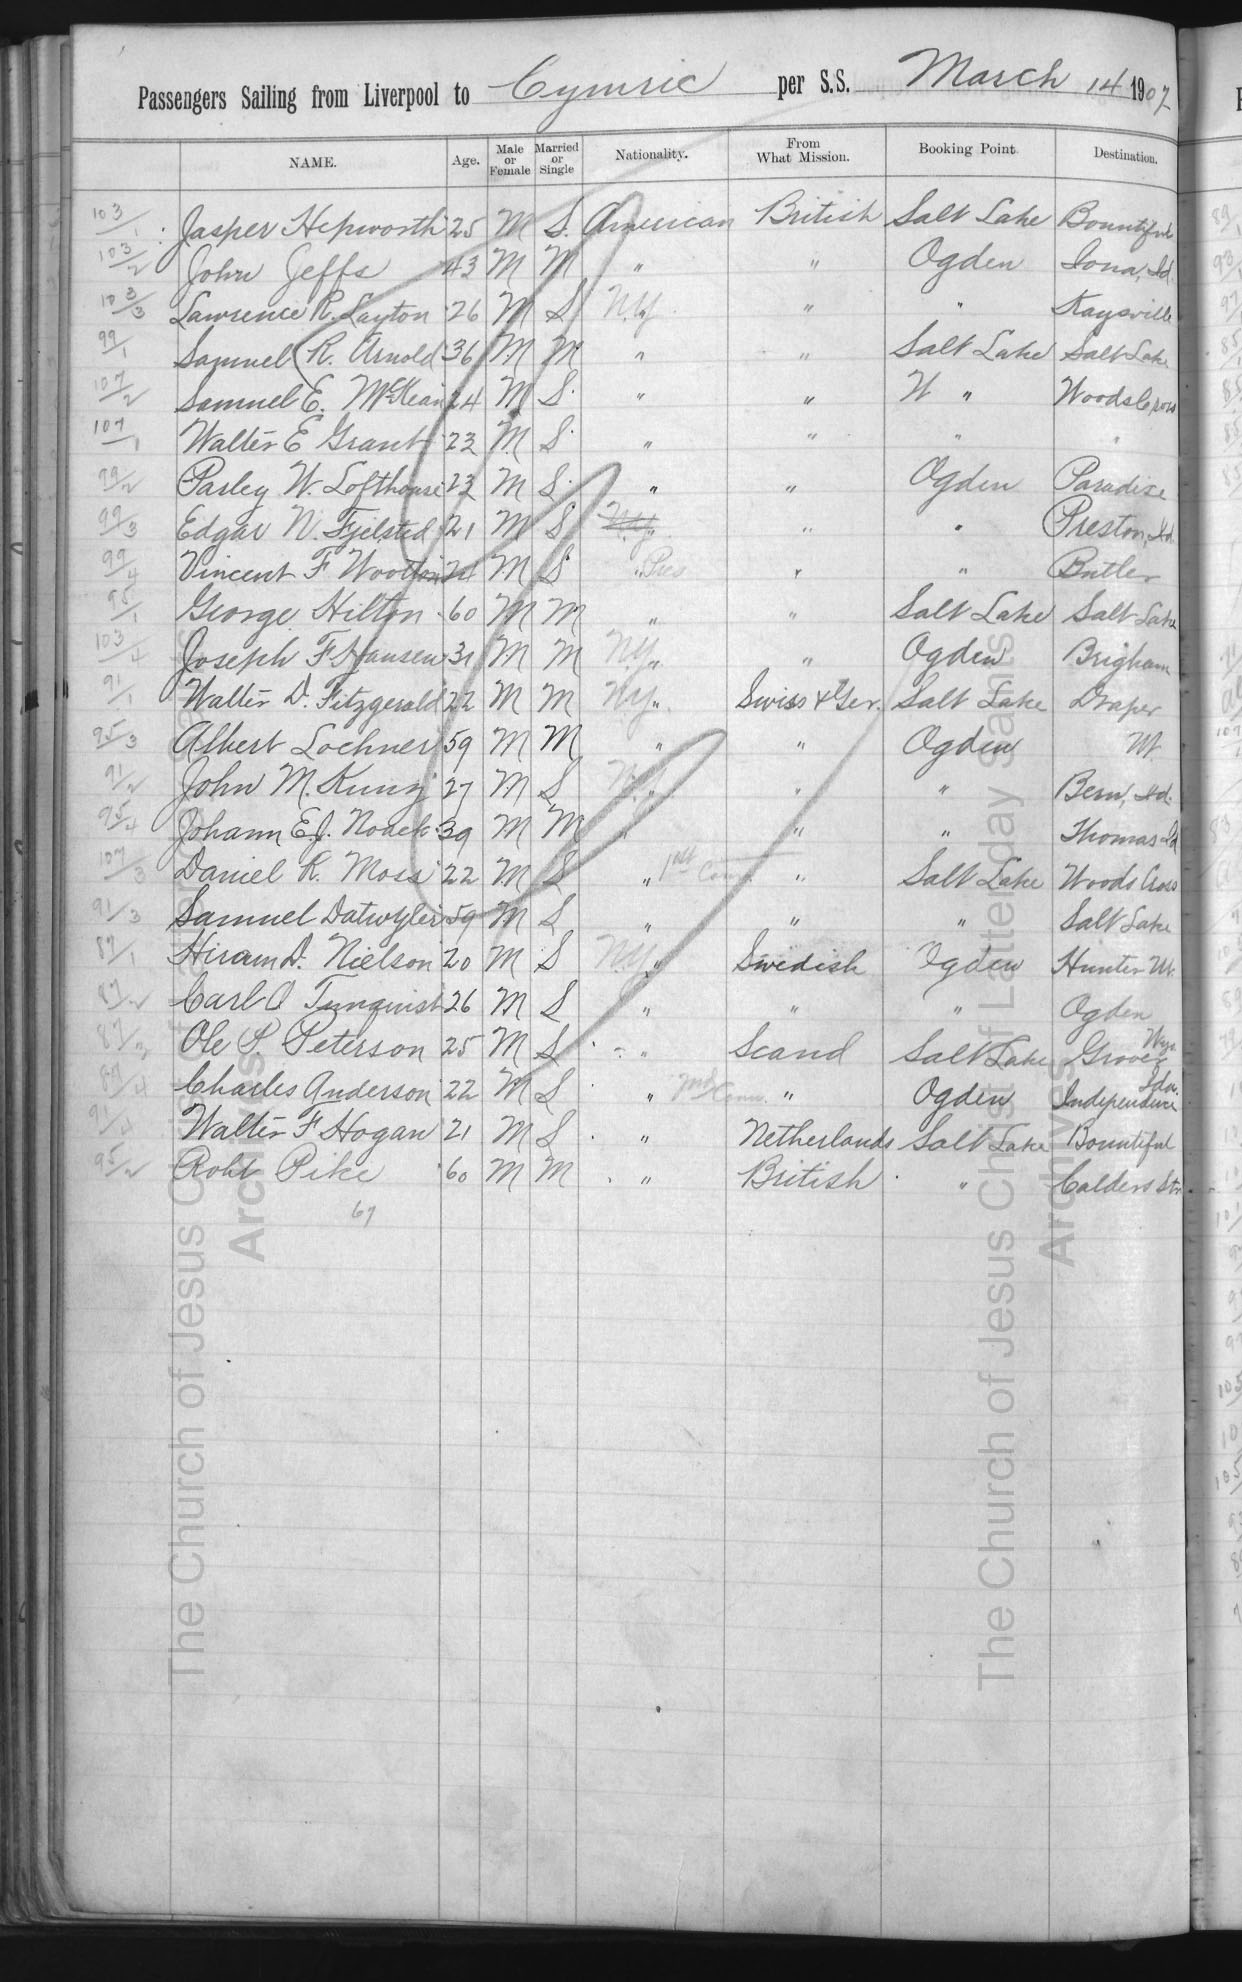 Passengers Sailing from Liverpool to Cymric per S.S. March 14 1907
NAME. Age. Male or Female Married or Single Nationality. From What Mission. Booking Point. Destination.
103/1 Jasper Hepworth 25 M S. American British Salt Lake Bountiful
103/2 John Jeffs 43 M M " " Ogden Iona, Id.
103/3 Lawrence R. Layton 26 M S N.Y. " " " Kaysville
99/1 Samuel R. Arnold 36 M M " " Salt Lake Salt Lake
107/2 Samuel E. McKean 24 M S. " " W " Woods Cross
107/1 Walter E Grant 23 M S. " " " "
99/2 Parley W. Lofthouse 23 M S. " " Ogden Paradise
99/3 Edgar N. Fjelsted 21 M S N.Y. " " " Preston, Id.
99/4 Vincent F Wootton M S " Pres " " Butler
95/1 George Hilton 60 M M " " Salt Lake Salt Lake
103/4 Joseph F Hansen 31 M M N.Y. " " Ogden Brigham
91/1 Walter D. Fitzgerald 22 M M N.Y. " Swiss & Ger. Salt Lake Draper
95/3 Albert Lochner 59 M M " " Ogden Ut.
91/2 John M. Kunz 27 M S N.Y. " " " Bern, Id.
95/4 Johann E.J. Noack 39 M M " " " Thomas Id
107/3 Daniel R. Moss 22 M S " 1st Coun. " Salt Lake Woods Cross
91/3 Samuel Datwyler 59 M S " " " Salt Lake
87/1 Hiram D. Nielson 20 M S N.Y. " Swedish Ogden Hunter Ut.
87/2 Carl O Tunquist 26 M S " " " Ogden
87/3 Ole S Peterson 25 M S " Scand Salt Lake Grover Wyo
87/4 Charles Anderson 22 M S " 2nd Coun. " Ogden Independence Ida.
91/4 Walter F Hogan 21 M S " Netherlands Salt Lake Bountiful
95/2 Robt Pike 60 M M " British " Calders Stn
67
The Church of Jesus Christ of Latter-day Saints
Archives
The Church of Jesus Christ of Latter-day Saints
Archives